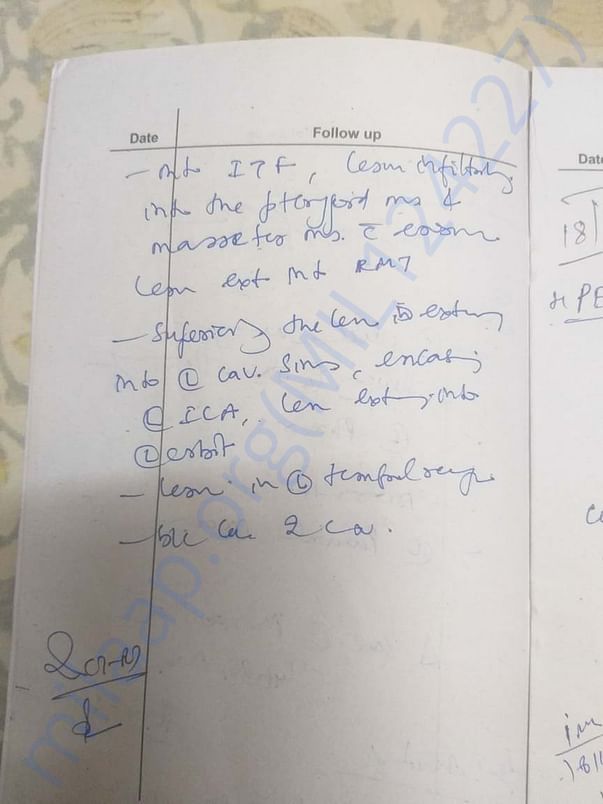 Date Follow up
- into ITF, lesion infiltrating
into the pterygoid ms &
masseter ms. c̄ erosion
lesion ext into RMT
- Superiorly the lesion is extending
into Ⓛ cav. Sinus, encasing
Ⓛ ICA, lesion extending into
Ⓛ orbit
- lesion in Ⓛ temporal region
- b/l
Date
18
HPE
milaap.org(MIL_1242227)